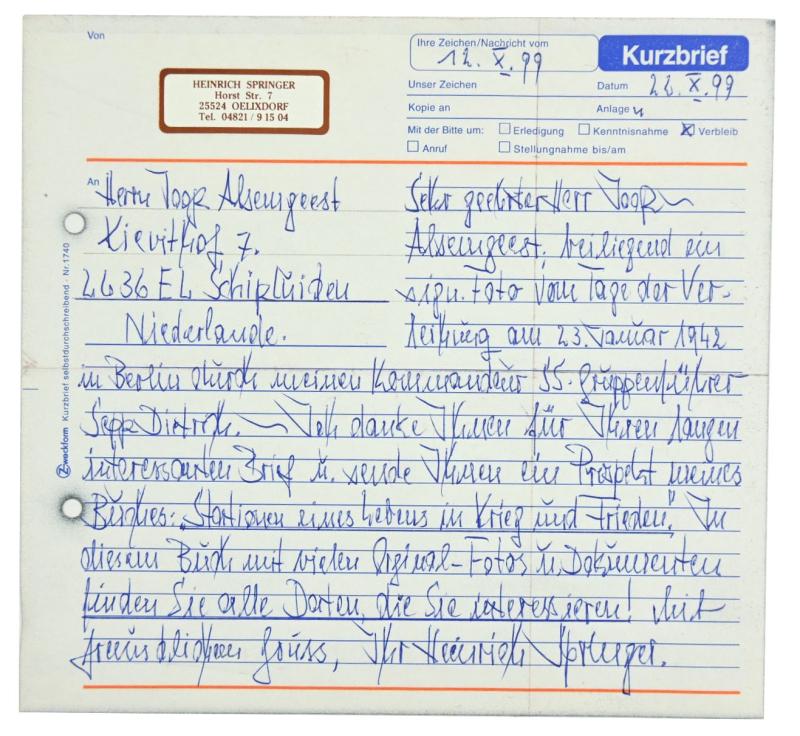 Von
HEINRICH SPRINGER
Horst Str. 7
25524 OELIXDORF
Tel. 04821 / 9 15 04
Ihre Zeichen/Nachricht vom
12. X. 99
Kurzbrief
Unser Zeichen
Datum 22. X. 99
Kopie an
Anlage 4
Mit der Bitte um: Erledigung Kenntnisnahme Verbleib
Anruf Stellungnahme bis/am
An Herrn Joop Alsemgeest
Kievithof 7.
2636 EL Schipluiden
Niederlande.
Sehr geehrter Herr Joop
Alsemgeest, beiliegend ein
sign. Foto vom Tage der Ver-
leihung am 23. Januar 1942
in Berlin durch meinen Kommandeur SS-Gruppenführer
Sepp Dietrich. – Ich danke Ihnen für Ihren langen
interessanten Brief u. sende Ihnen ein Prospekt meines
Buches: "Stationen eines Lebens in Krieg und Frieden". In
diesem Buch mit vielen Orginal-Fotos u. Dokumenten
finden Sie alle Daten, die Sie interessieren! Mit
freundlichem Gruss, Ihr Heinrich Springer.
Zweckform Kurzbrief selbstdurchschreibend · Nr. 1740